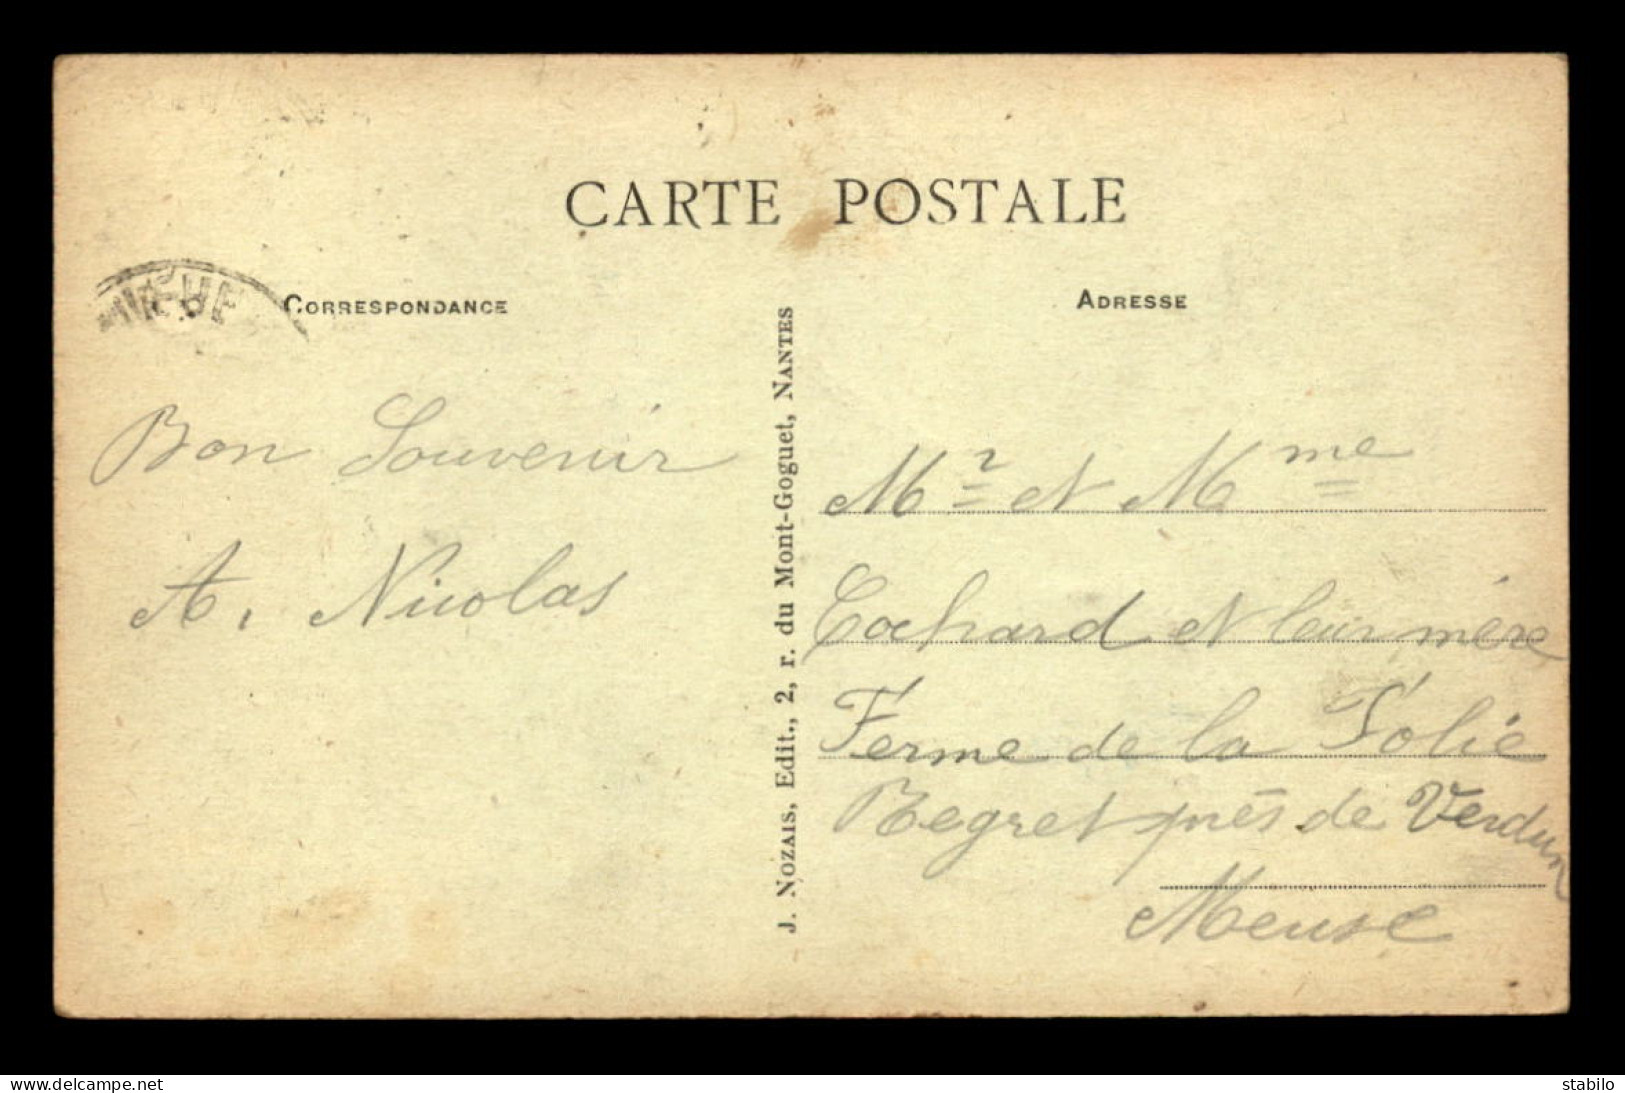 CARTE POSTALE
CORRESPONDANCE
ADRESSE
Bon Souvenir
A. Nicolas
J. NOZAIS, Edit., 2, r. du Mont-Goguet, NANTES
Mr et Mme
Cochard et leur mère
Ferme de la Folie
Regret près de Verdun
Meuse
www.delcampe.net
stabilo